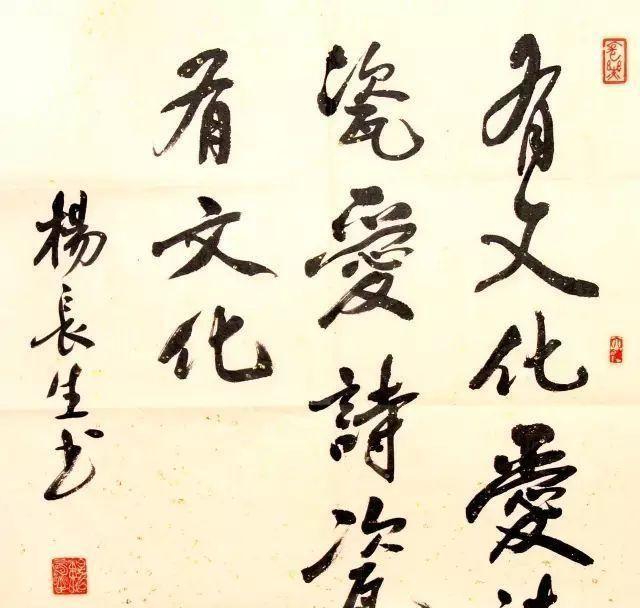 有文化愛
瓷愛詩瓷
有文化
楊長生书